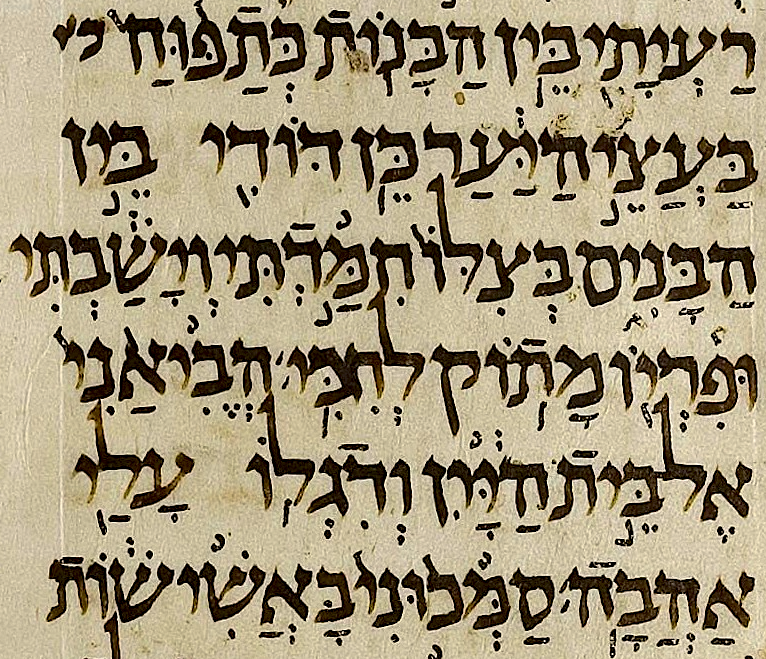 רַעְיָתִי בֵּין הַבָּנוֹת כְּתַפּוּחַ
בַּעֲצֵי הַיַּעַר כֵּן דּוֹדִי בֵּין
הַבָּנִים בְּצִלּוֹ חִמַּדְתִּי וְיָשַׁבְתִּי
וּפִרְיוֹ מָתוֹק לְחִכִּי׃ הֱבִיאַנִי
אֶל בֵּית הַיָּיִן וְדִגְלוֹ עָלַי
אַהֲבָה׃ סַמְּכוּנִי בָּאֲשִׁישׁוֹת